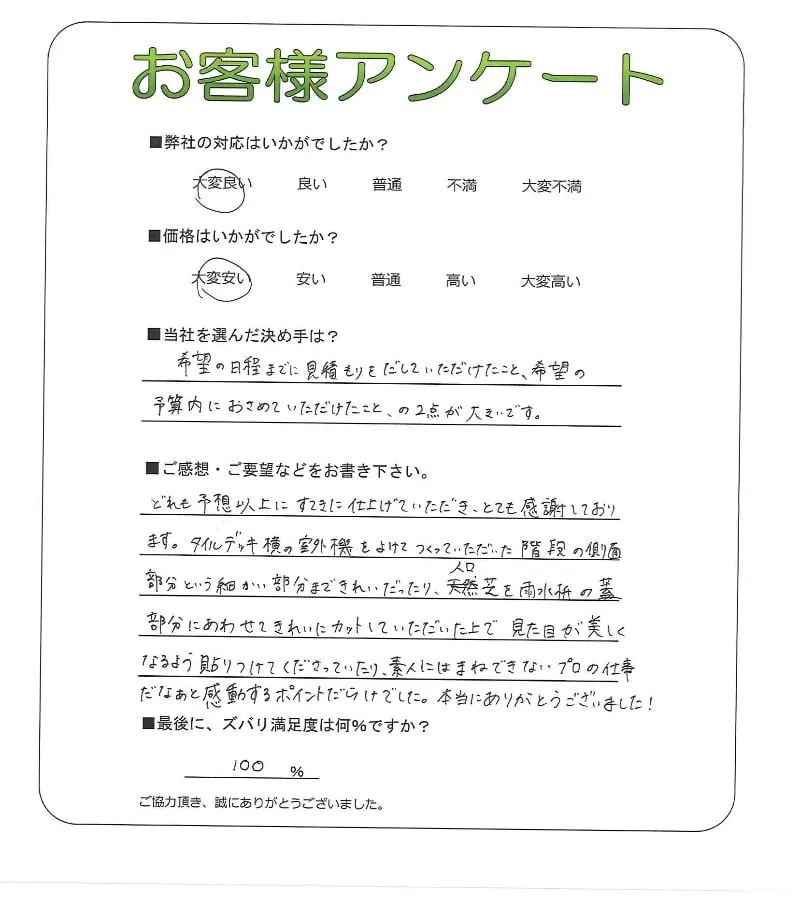 お客様アンケート
■弊社の対応はいかがでしたか？
大変良い 良い 普通 不満 大変不満
■価格はいかがでしたか？
大変安い 安い 普通 高い 大変高い
■当社を選んだ決め手は？
希望の日程までに見積もりをだしていただけたこと、希望の
予算内におさめていただけたこと、の2点が大きいです。
■ご感想・ご要望などをお書き下さい。
どれも予想以上にすてきに仕上げていただき、とても感謝しており
ます。タイルデッキ横の室外機をよけてつくっていただいた階段の側面
人口
部分という細かい部分まできれいだったり、天然芝を雨水枡の蓋
部分にあわせてきれいにカットしていただいた上で見た目が美しく
なるよう貼りつけてくださっていたり、素人にはまねできないプロの仕事
だなぁと感動するポイントだらけでした。本当にありがとうございました！
■最後に、ズバリ満足度は何%ですか？
100 %
ご協力頂き、誠にありがとうございました。